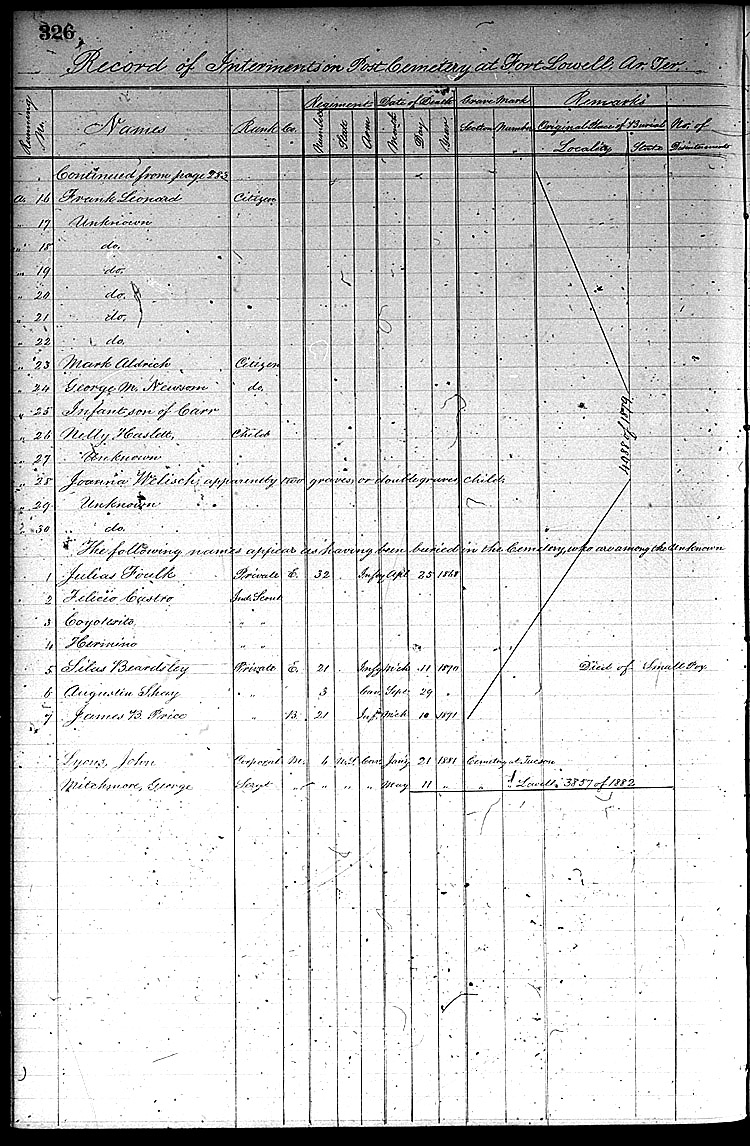 326
Record of Interments in Post Cemetery at Fort Lowell, Ar. Ter.
Running No. Names Rank Co. Regiment Date of Death Grave Mark Remarks
Number State Arm Month Day Year Section Number Original Place of Burial No. of
Locality State Disinterment
Continued from page 283
16 Frank Leonard Citizen
" 17 Unknown
" 18 do.
" 19 do.
" 20 do.
" 21 do.
" 22 do.
" 23 Mark Aldrich Citizen
" 24 George M. Newsom do.
" 25 Infant son of Carr
" 26 Nelly Haslett, Child
" 27 Unknown
" 28 Joanna Welisch; apparently two graves, or double graves, child.
" 29 Unknown
" 30 do.
4988 of 1879
The following names appear as having been buried in the Cemetery, who are among the Unknown
1 Julias Foulk Private E. 32 Infy Apl 25 1868
2 Felicio Castro Ind. Scout
3 Coyoterito " "
4 Hermino " "
5 Silas Beardsley Private E. 21 Infy Mch 11 1870 Died of Small Pox.
6 Augustin Shay " " 3 Cav. Sept. 29 "
7 James B. Price " B. 21 Inf. Mch 10 1871
Lyons, John Corporal M. 6 U.S. Cav. Jan'y 21 1881 Cemetery at Tucson
Mitchmore, George Sergt " " " " May 11 " " " Lowell. 3857 of 1882